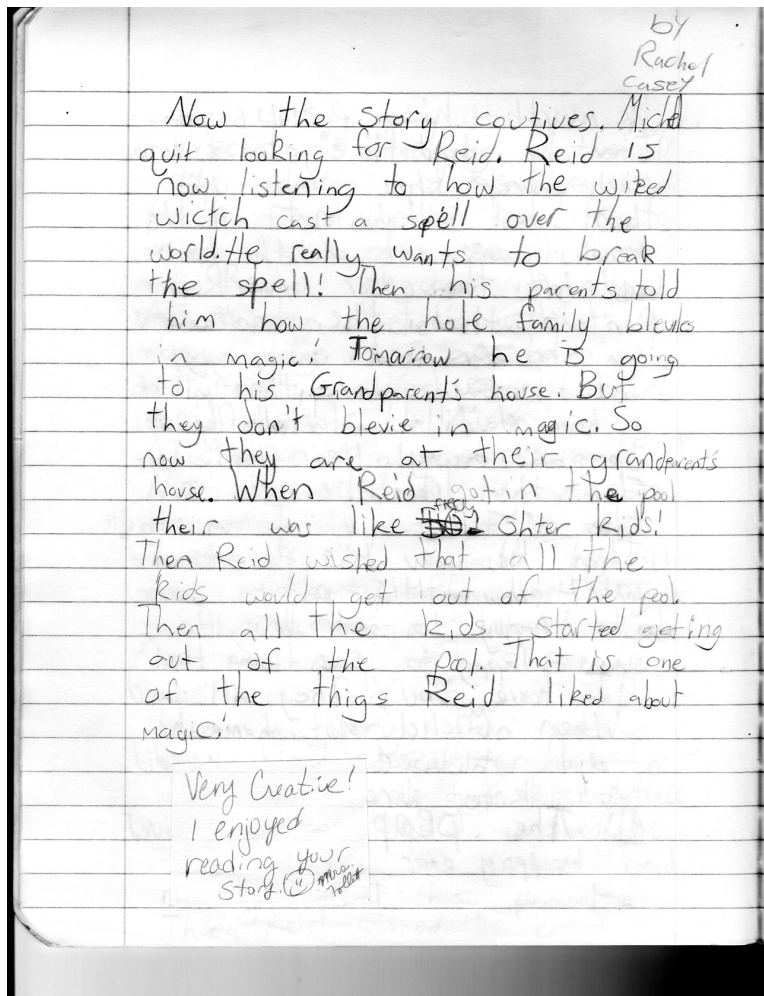 by
Rachel
Casey
Now the Story coutives. Michel
quit looking for Reid. Reid is
now listening to how the wiked
wictch cast a spell over the
world. He really wants to break
the spell! Then his parents told
him how the hole family bleives
in magic! Tomarrow he is going
to his Grandparent's house. But
they don't blevie in magic. So
now they are at their grandparent's
house. When Reid got in the pool
their was like fifty Ohter kids!
Then Reid wished that all the
kids would get out of the pool.
Then all the kids Started geting
out of the pool. That is one
of the thigs Reid liked about
magic!
Very Creative!
I enjoyed
reading your
Story. Mrs.
Follett